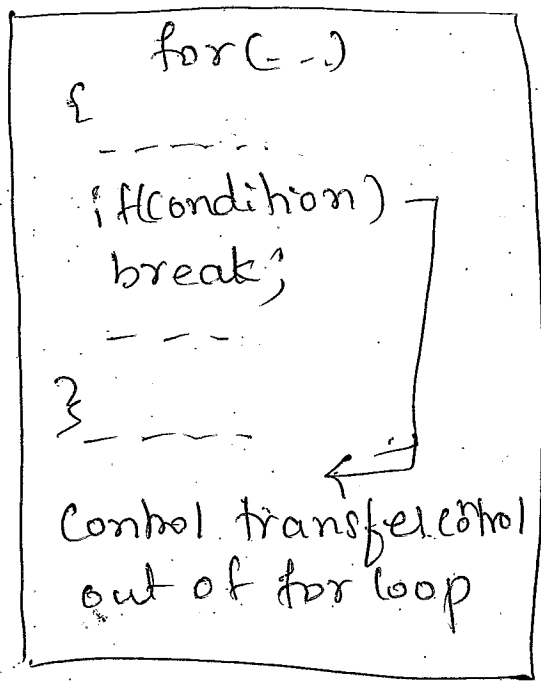 for(- -)
{
- - - - - -
if(condition)
break;
- - - -
}
- - - - -
Control transfer control
out of for loop